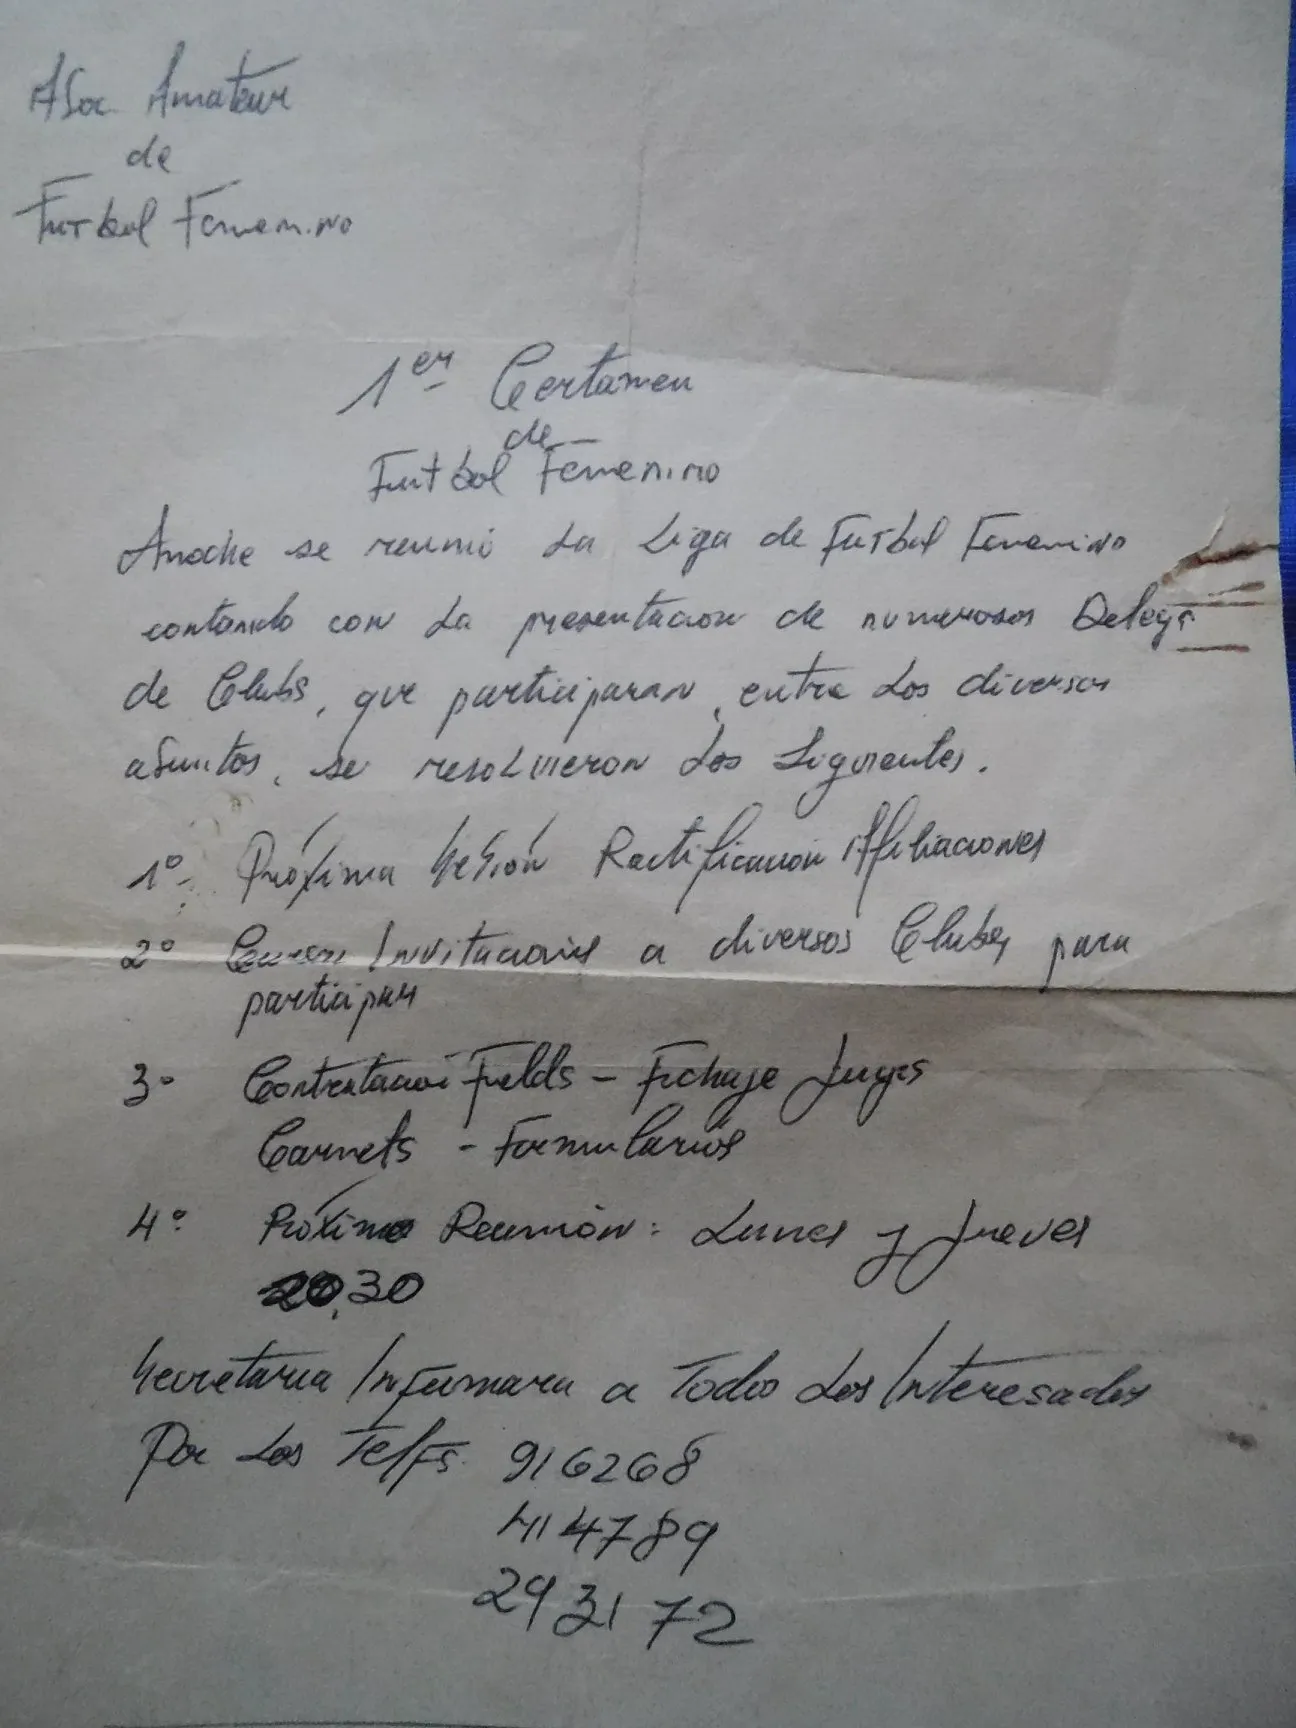 Asoc. Amateur
de
Futbol Femenino
1er Certamen
de
Futbol Femenino
Anoche se reunió La Liga de Futbol Femenino
contando con La presentacion de numerosos Deleg
de Clubs, que participaran, entre Los diversos
asuntos, se resolvieron Los Siguientes.
1º- Próxima Sesión Ractificacion Affiliaciones
2º Invitaciones a diversos Clubes para
participar
3º Contratacion Fields - Fichaje Jugs
Carnets - Formularios
4º Próxima Reunión: Lunes y Jueves
20,30
Secretaria Informara a Todos Los Interesados
Por Los Telfs. 916268
414789
293172